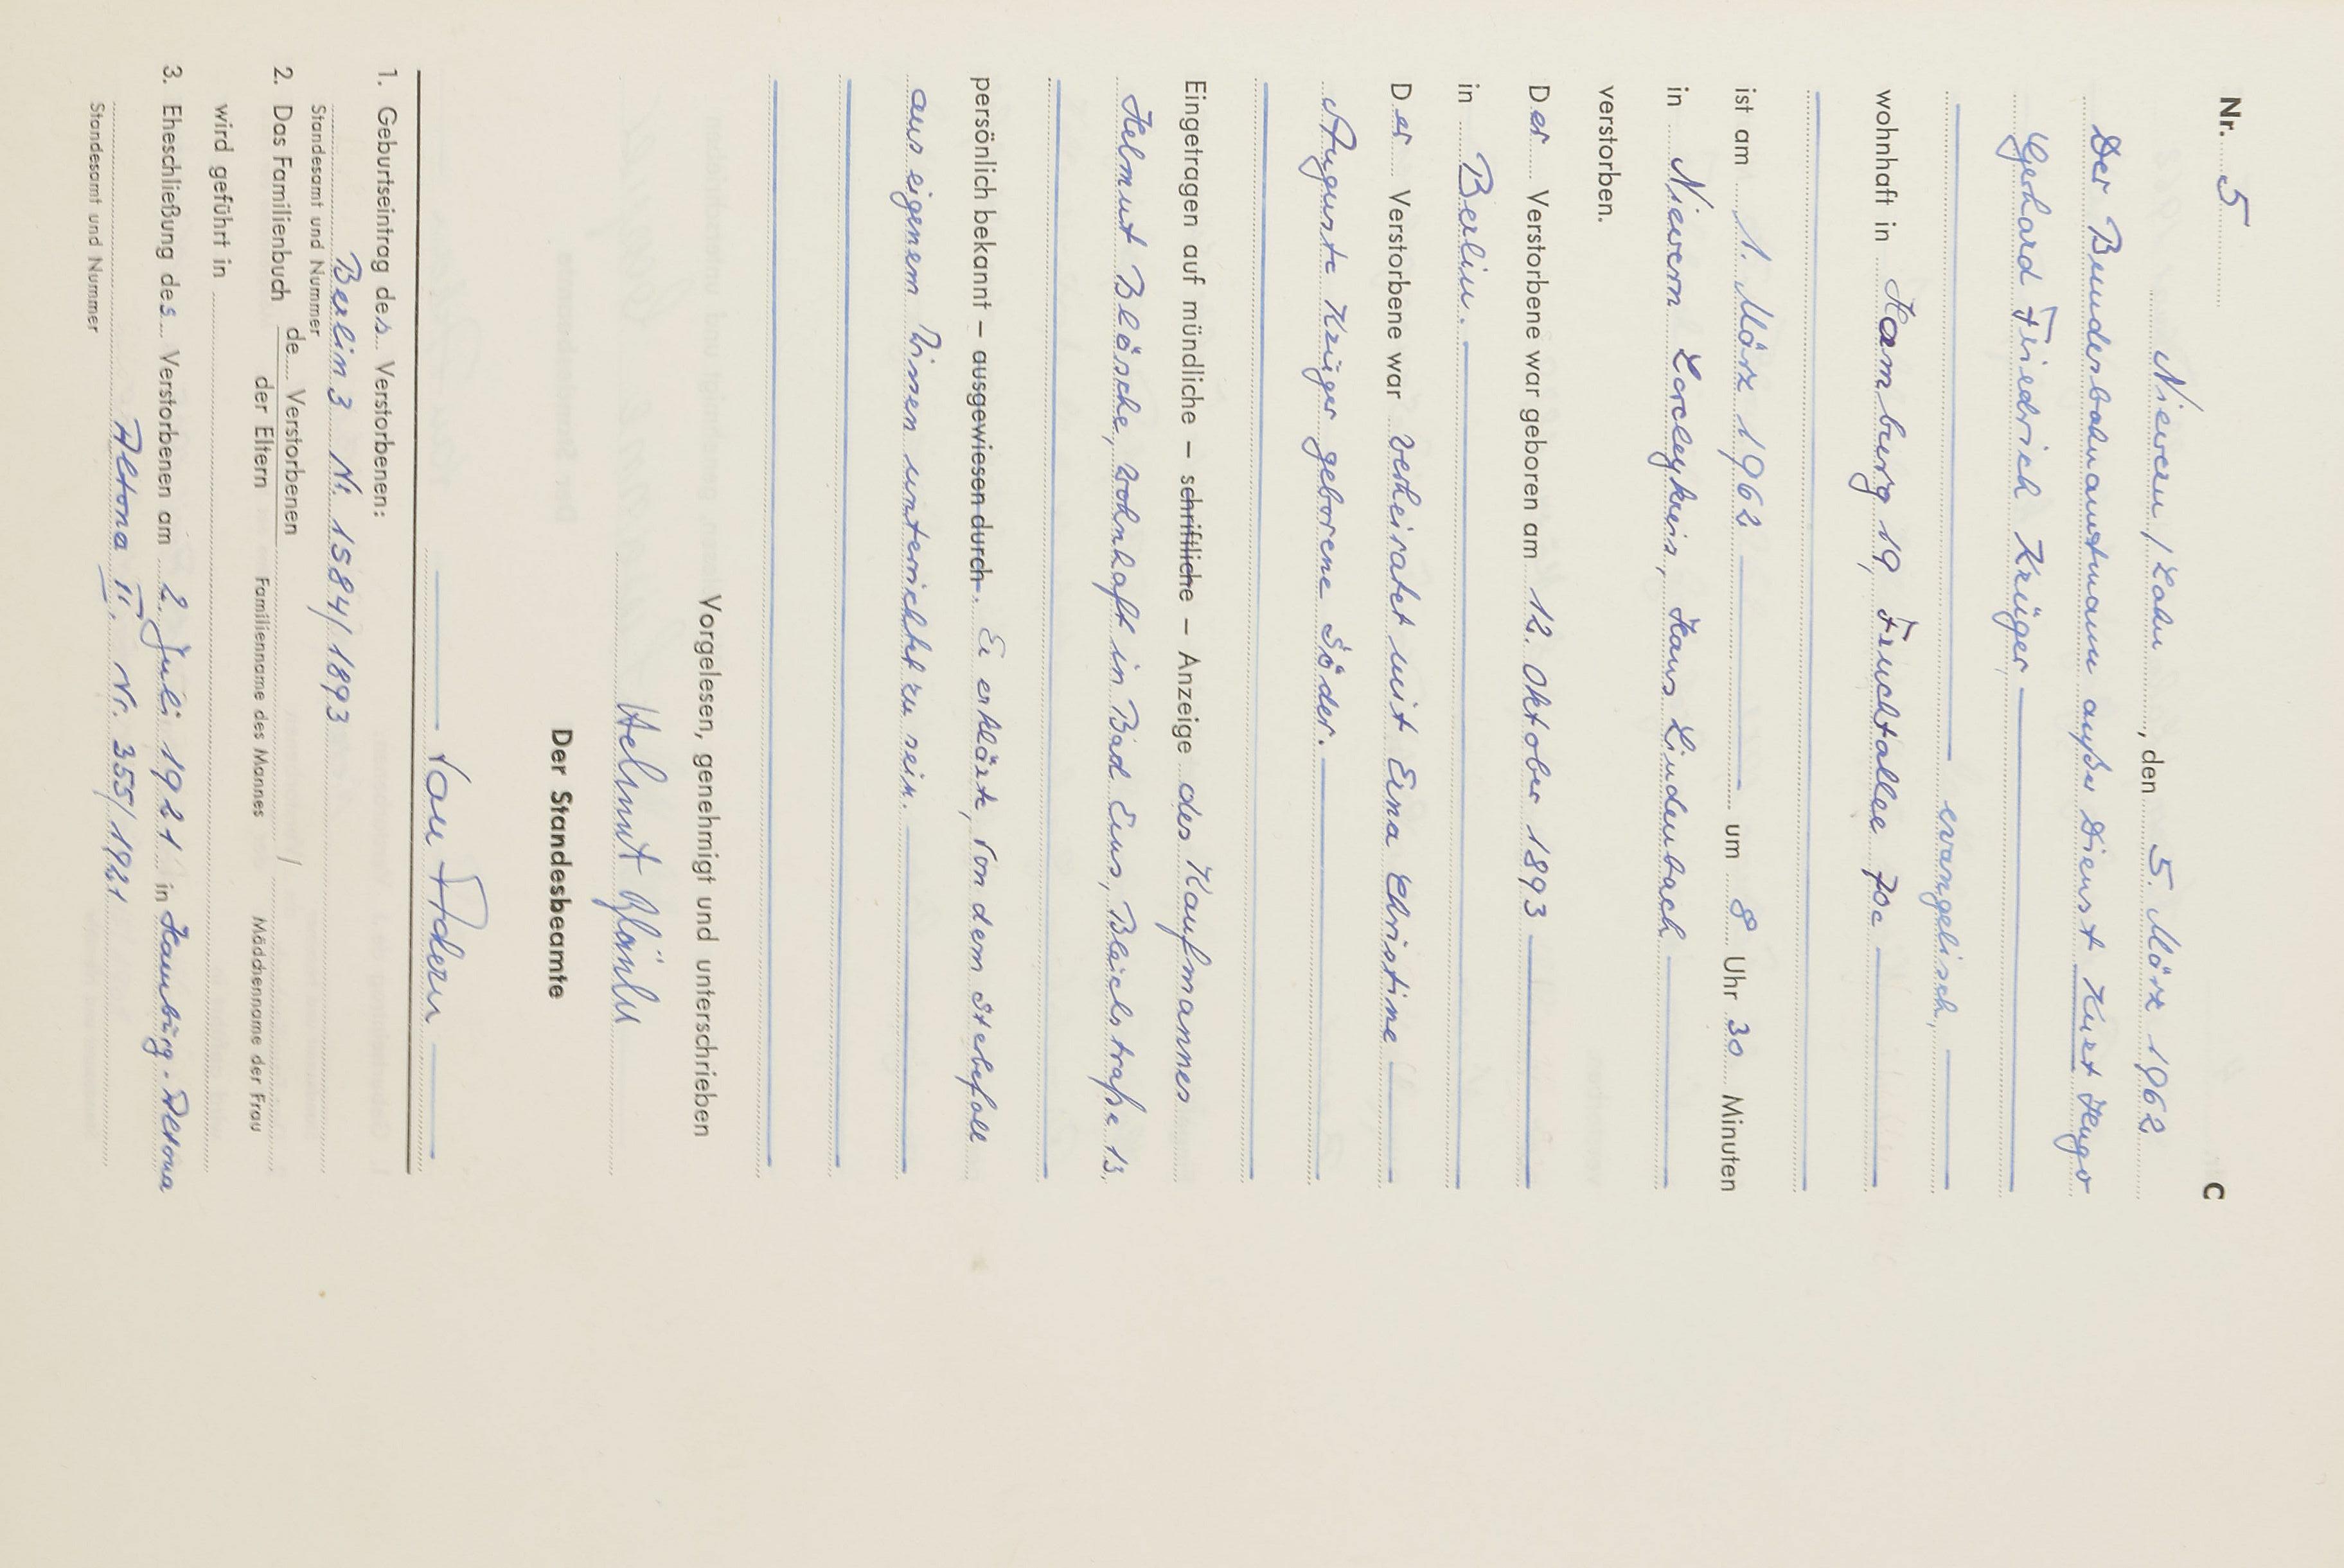 Nr. 5 C
Nievern/Lahn, den 5. März 1962
Der Bundesbahnamtmann außer Dienst Kurt Hugo
Gerhard Friedrich Krüger
evangelisch,
wohnhaft in Hamburg 19, Fruchtallee 70c
ist am 1. März 1962 um 8 Uhr 30 Minuten
in Nievern Loreleykreis, Haus Lindenbach
verstorben.
Der Verstorbene war geboren am 12. Oktober 1893
in Berlin.
Der Verstorbene war verheiratet mit Erna Christine
Auguste Krüger geborene Söder.
Eingetragen auf mündliche – schriftliche – Anzeige des Kaufmannes
Helmut Blöske, wohnhaft in Bad Ems, Bleichstraße 13,
persönlich bekannt – ausgewiesen durch. Er erklärte, von dem Sterbefall
aus eigenem Wissen unterrichtet zu sein.
Vorgelesen, genehmigt und unterschrieben
Helmut
Der Standesbeamte
1. Geburtseintrag des Verstorbenen:
Berlin 3 Nr. 1584/1893
Standesamt und Nummer
2. Das Familienbuch de Verstorbenen /
der Eltern Familienname des Mannes Mädchenname der Frau
wird geführt in
3. Eheschließung des Verstorbenen am 2. Juli 1921 in Hamburg-Altona
Altona II. Nr. 355/1921
Standesamt und Nummer